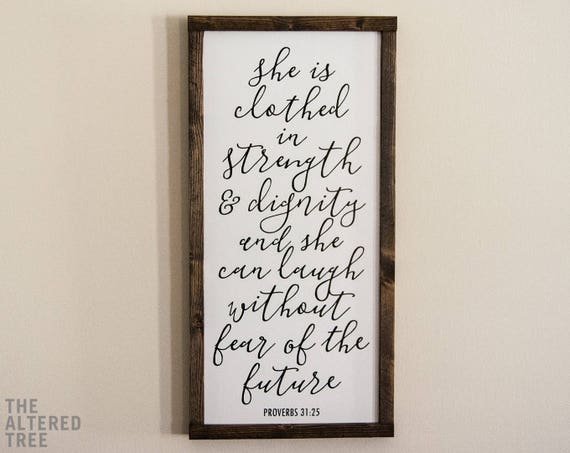 she is
clothed
in
strength
& dignity
and she
can laugh
without
fear of the
future
PROVERBS 31:25
THE
ALTERED
TREE